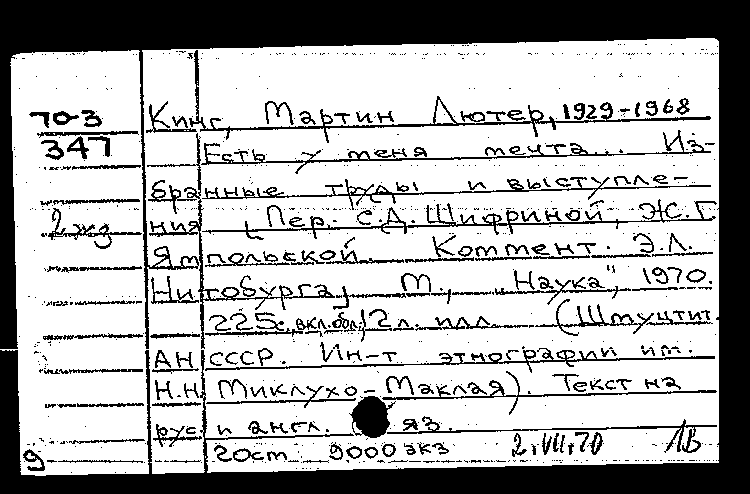 70-3 Кинг, Мартин Лютер, 1929-1968
347 Есть у меня мечта... Из-
бранные труды и выступле-
2 экз ния [Пер. С.Д. Шифриной, Ж.Г.
Ямпольской. Коммент. Э.Л.
Нитобурга] М., "Наука", 1970.
225 с., вкл. обл.; 2 л. илл. (Шмуцтит.
АН СССР. Ин-т этнографии им.
Н.Н Миклухо-Маклая). Текст на
рус. и англ. яз.
9 20 ст 9000 экз 2.VII.70 ЛВ